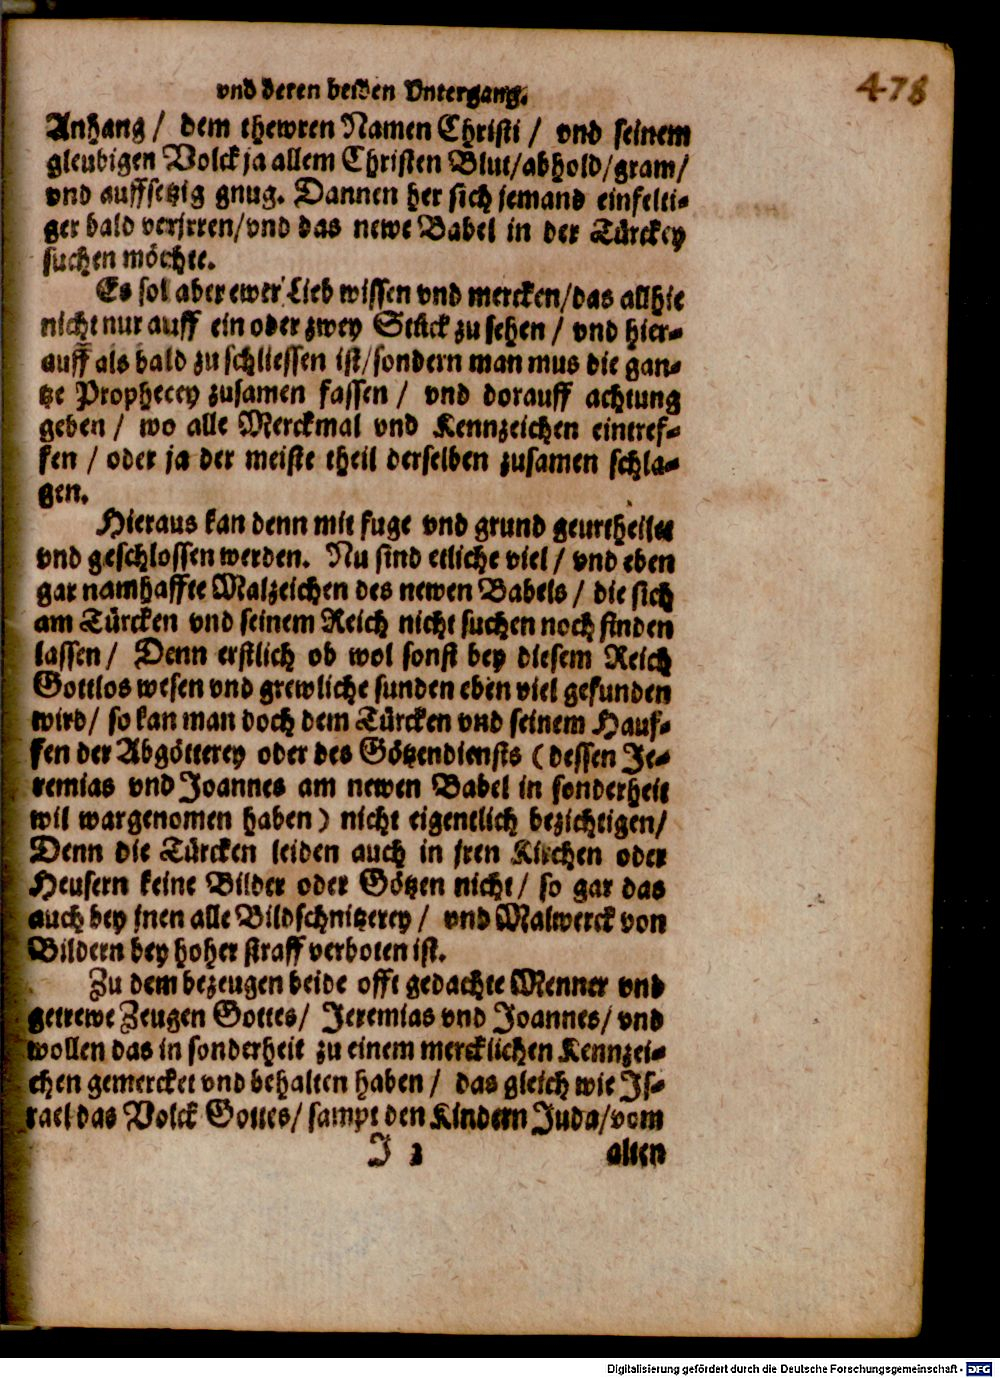 vnd deren beiden Vntergang.
478
Anhang / dem thewren Namen Christi / vnd seinem
gleubigen Volck ja allem Christen Blut/abhold/gram/
vnd auffsetzig gnug. Dannen her sich jemand einfelti-
ger bald verjrren/vnd das newe Babel in der Türckey
suchen möchte.
Es sol aber ewer Lieb wissen vnd mercken/das allhie
nicht nur auff ein oder zwey Stück zu sehen / vnd hier-
auff als bald zu schliessen ist/sondern man mus die gan-
tze Prophecey zusamen fassen / vnd dorauff achtung
geben / wo alle Merckmal vnd Kennzeichen eintref-
fen / oder ja der meiste theil derselben zusamen schla-
gen.
Hieraus kan denn mit fuge vnd grund geurtheilet
vnd geschlossen werden. Nu sind etliche viel / vnd eben
gar namhaffte Malzeichen des newen Babels / die sich
am Türcken vnd seinem Reich nicht suchen noch finden
lassen / Denn erstlich ob wol sonst bey diesem Reich
Gottlos wesen vnd grewliche sunden eben viel gefunden
wird/ so kan man doch dem Türcken vnd seinem Hauf-
fen der Abgötterey oder des Götzendiensts (dessen Je-
remias vnd Joannes am newen Babel in sonderheit
wil wargenomen haben) nicht eigentlich bezichtigen/
Denn die Türcken leiden auch in jren Kirchen oder
Heusern keine Bilder oder Götzen nicht / so gar das
auch bey jnen alle Bildschnitzerey / vnd Malwerck von
Bildern bey hoher straff verboten ist.
Zu dem bezeugen beide offt gedachte Menner vnd
getrewe Zeugen Gottes/ Jeremias vnd Joannes/ vnd
wollen das in sonderheit zu einem mercklichen Kennzei-
chen gemercket vnd behalten haben / das gleich wie Js-
rael das Volck Gottes/ sampt den Kindern Juda/vom
J 2 alten
Digitalisierung gefördert durch die Deutsche Forschungsgemeinschaft - DFG